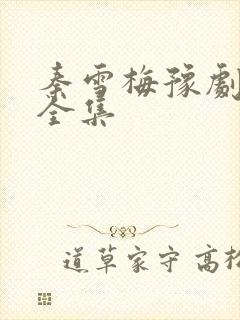 秦雪梅豫劇
全集
道草家守高松